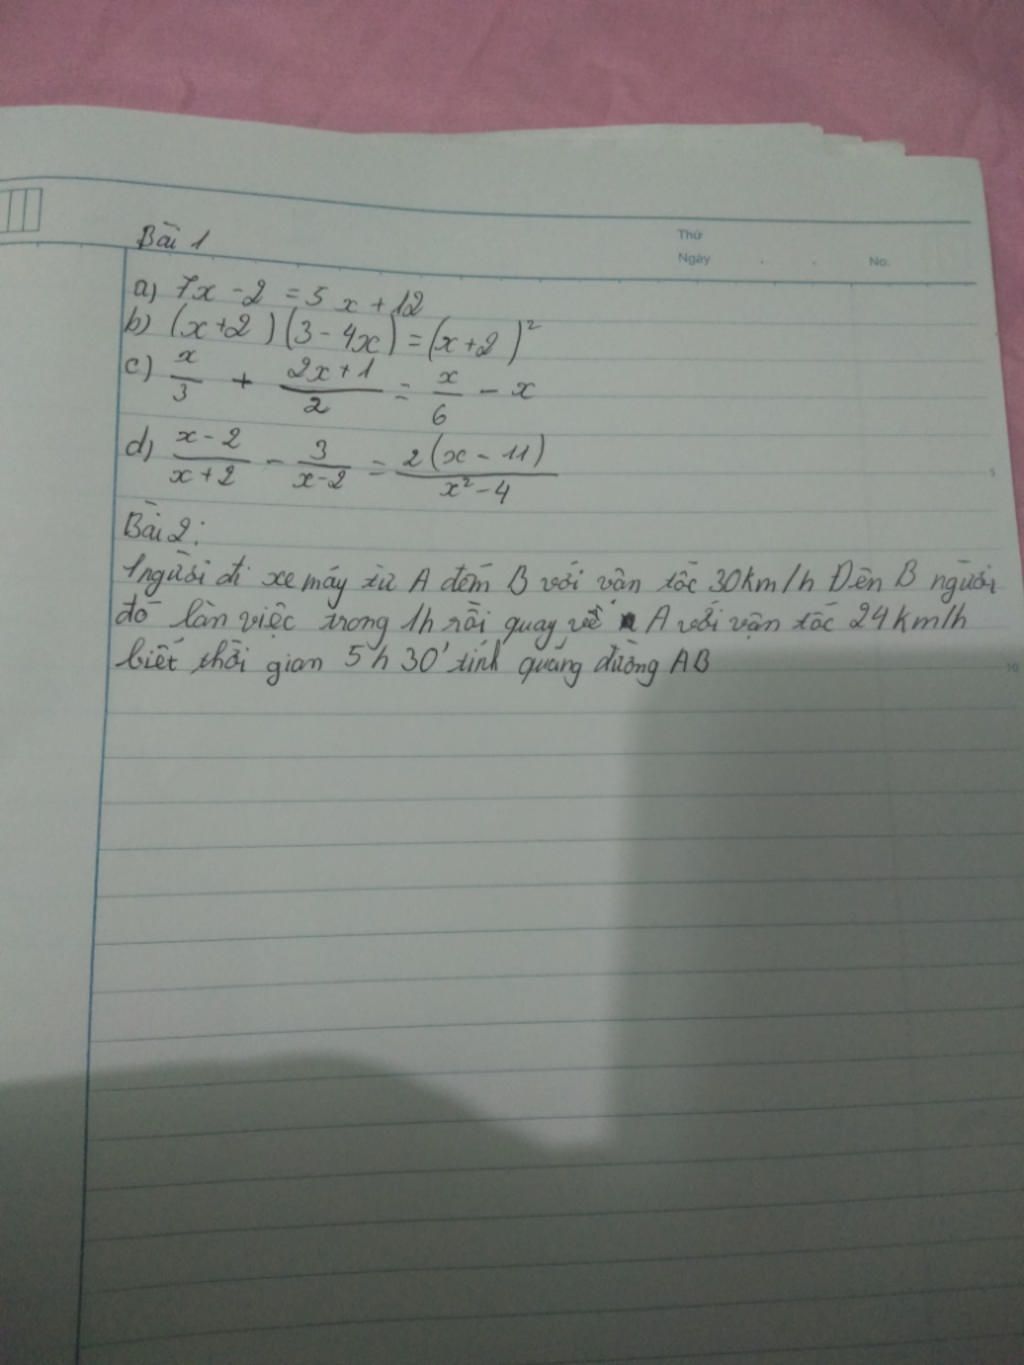 Thứ
Ngày . . No.
Bài 1
a) 7x - 2 = 5x + 12
b) (x+2)(3 - 4x) = (x+2)²
c) x/3 + (2x+1)/2 = x/6 - x
d) (x-2)/(x+2) - 3/(x-2) = 2(x - 11)/(x²-4)
5
Bài 2:
1 người đi xe máy từ A đếm B với vân tốc 30km/h Đên B người
đó làn việc trong 1h rồi quay về A với vận tốc 24km/h
biết thời gian 5h30' tính quáng đường AB
10